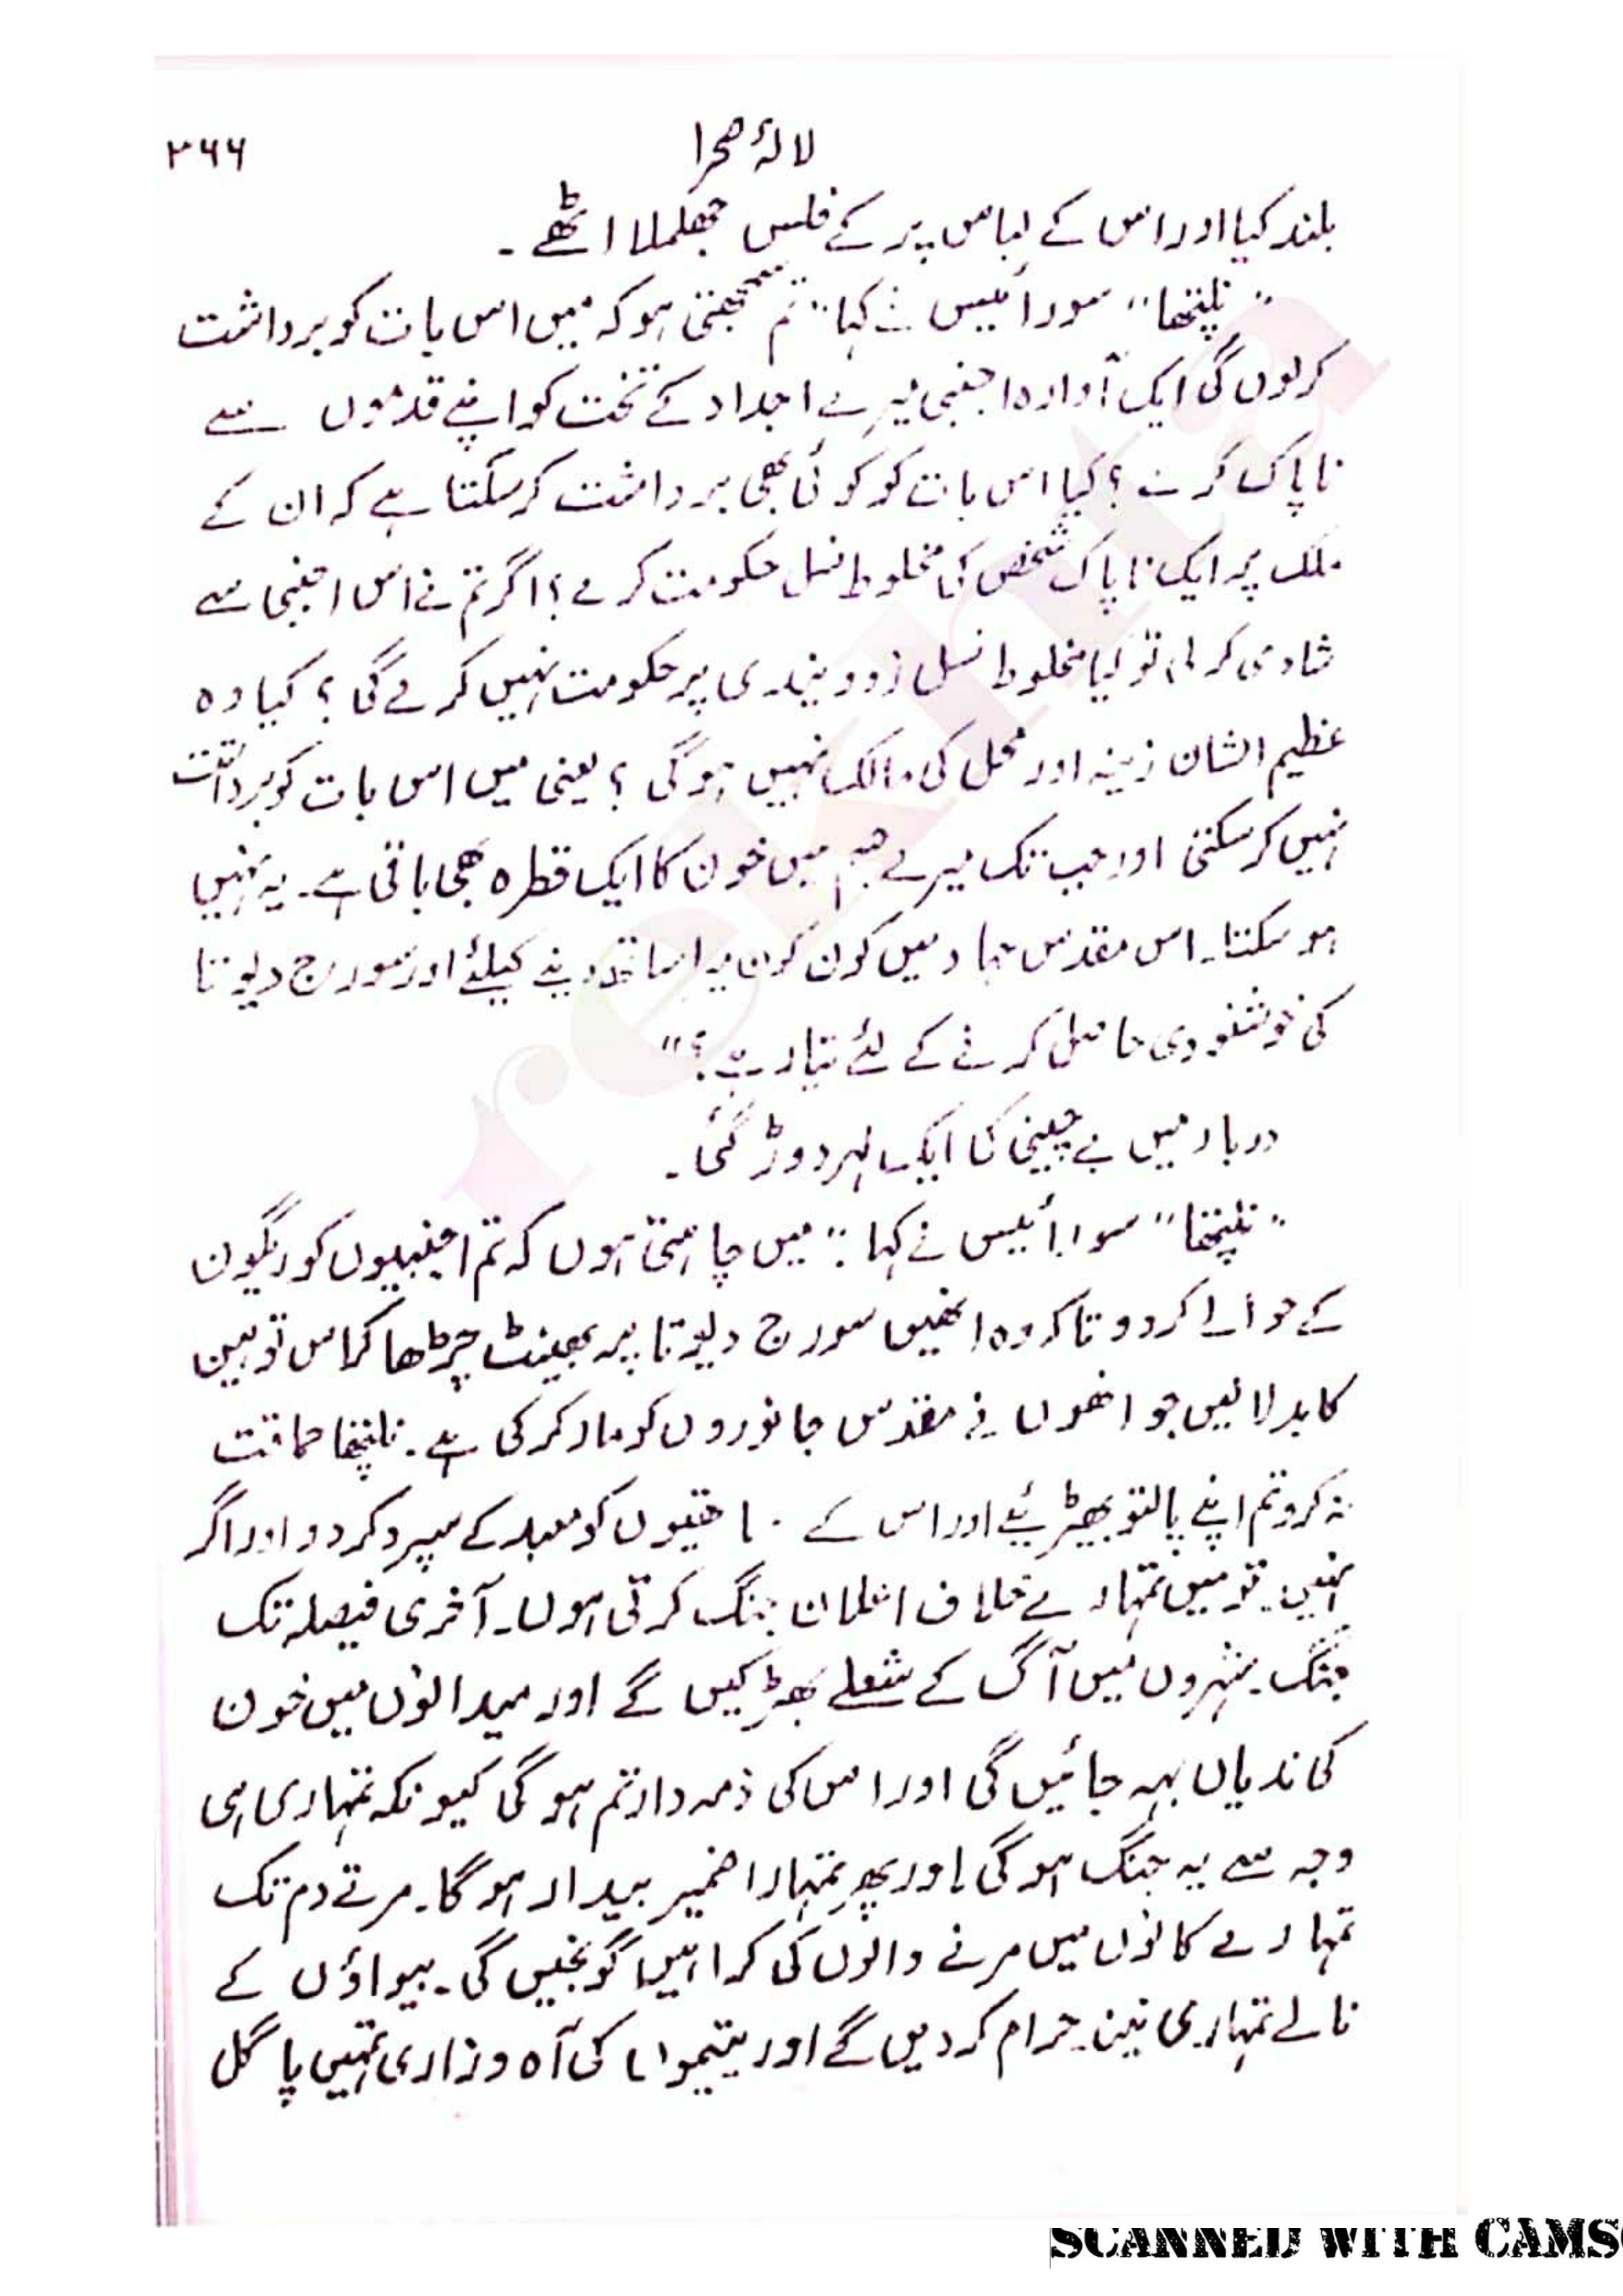 لالۂ صحرا
۳۶۶
بلند کیا اور اس کے لباس پر کے فلس جھلملا اٹھے۔
"نلپتھا" سورائیس نے کہا "تم سمجھتی ہو کہ میں اس بات کو برداشت
کرلوں گی ایک آوارہ اجنبی میرے اجداد کے تخت کو اپنے قدموں سے
ناپاک کرے؟ کیا اس بات کو کوئی بھی برداشت کرسکتا ہے کہ ان کے
ملک پر ایک ناپاک شخص کی مخلوط نسل حکومت کرے؟ اگر تم نے اس اجنبی سے
شادی کر لی تو کیا مخلوط نسل زوویندی پر حکومت نہیں کرے گی؟ کیا وہ
عظیم الشان زینہ اور محل کی مالک نہیں ہوگی؟ یعنی میں اس بات کو برداشت
نہیں کرسکتی اور جب تک میرے جسم میں خون کا ایک قطرہ بھی باقی ہے۔ یہ نہیں
ہوسکتا۔ اس مقدس جہاد میں کون کون میرا ساتھ دینے کیلئے اور سورج دیوتا
کی خوشنودی حاصل کرنے کے لئے تیار ہے؟"
دربار میں بے چینی کی ایک لہر دوڑ گئی۔
"نلپتھا" سورائیس نے کہا: "میں چاہتی ہوں کہ تم اجنبیوں کو ریگون
کے حوالے کردو تاکہ وہ انھیں سورج دیوتا پر بھینٹ چڑھا کر اس توہین
کا بدلا لیں جو انھوں نے مقدس جانوروں کو مار کر کی ہے۔ نلپتھا حماقت
نہ کرو تم اپنے پالتو بھیڑیئے اور اس کے ساتھیوں کو معبد کے سپرد کردو اور اگر
نہیں۔ تو میں تمہارے خلاف اعلان جنگ کرتی ہوں۔ آخری فیصلہ تک
جنگ۔ شہروں میں آگ کے شعلے بھڑکیں گے اور میدانوں میں خون
کی ندیاں بہہ جائیں گی اور اس کی ذمہ دار تم ہوگی کیونکہ تمہاری ہی
وجہ سے یہ جنگ ہوگی اور پھر تمہارا ضمیر بیدار ہوگا۔ مرتے دم تک
تمہارے کانوں میں مرنے والوں کی کراہیں گونجیں گی۔ بیواؤں کے
نالے تمہاری نیند حرام کر دیں گے اور یتیموں کی آہ و زاری تمہیں پاگل
rekhta
SCANNED WITH CAMS